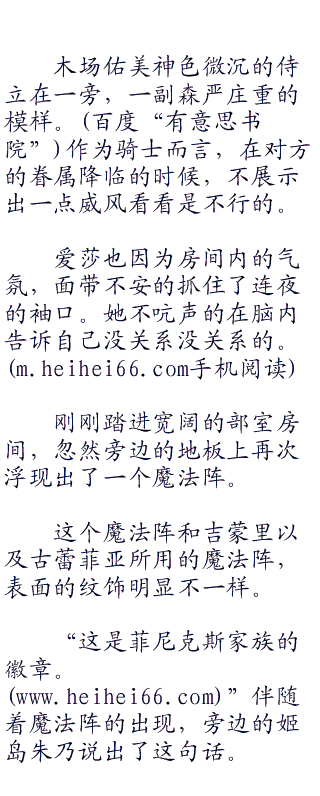 木场佑美神色微沉的侍
立在一旁，一副森严庄重的
模样。(百度“有意思书
院”)作为骑士而言，在对方
的眷属降临的时候，不展示
出一点威风看看是不行的。
爱莎也因为房间内的气
氛，面带不安的抓住了连夜
的袖口。她不吭声的在脑内
告诉自己没关系没关系的。
(m.heihei66.com手机阅读)
刚刚踏进宽阔的部室房
间，忽然旁边的地板上再次
浮现出了一个魔法阵。
这个魔法阵和吉蒙里以
及古蕾菲亚所用的魔法阵，
表面的纹饰明显不一样。
“这是菲尼克斯家族的
徽章。
(www.heihei66.com)”伴随
着魔法阵的出现，旁边的姬
岛朱乃说出了这句话。